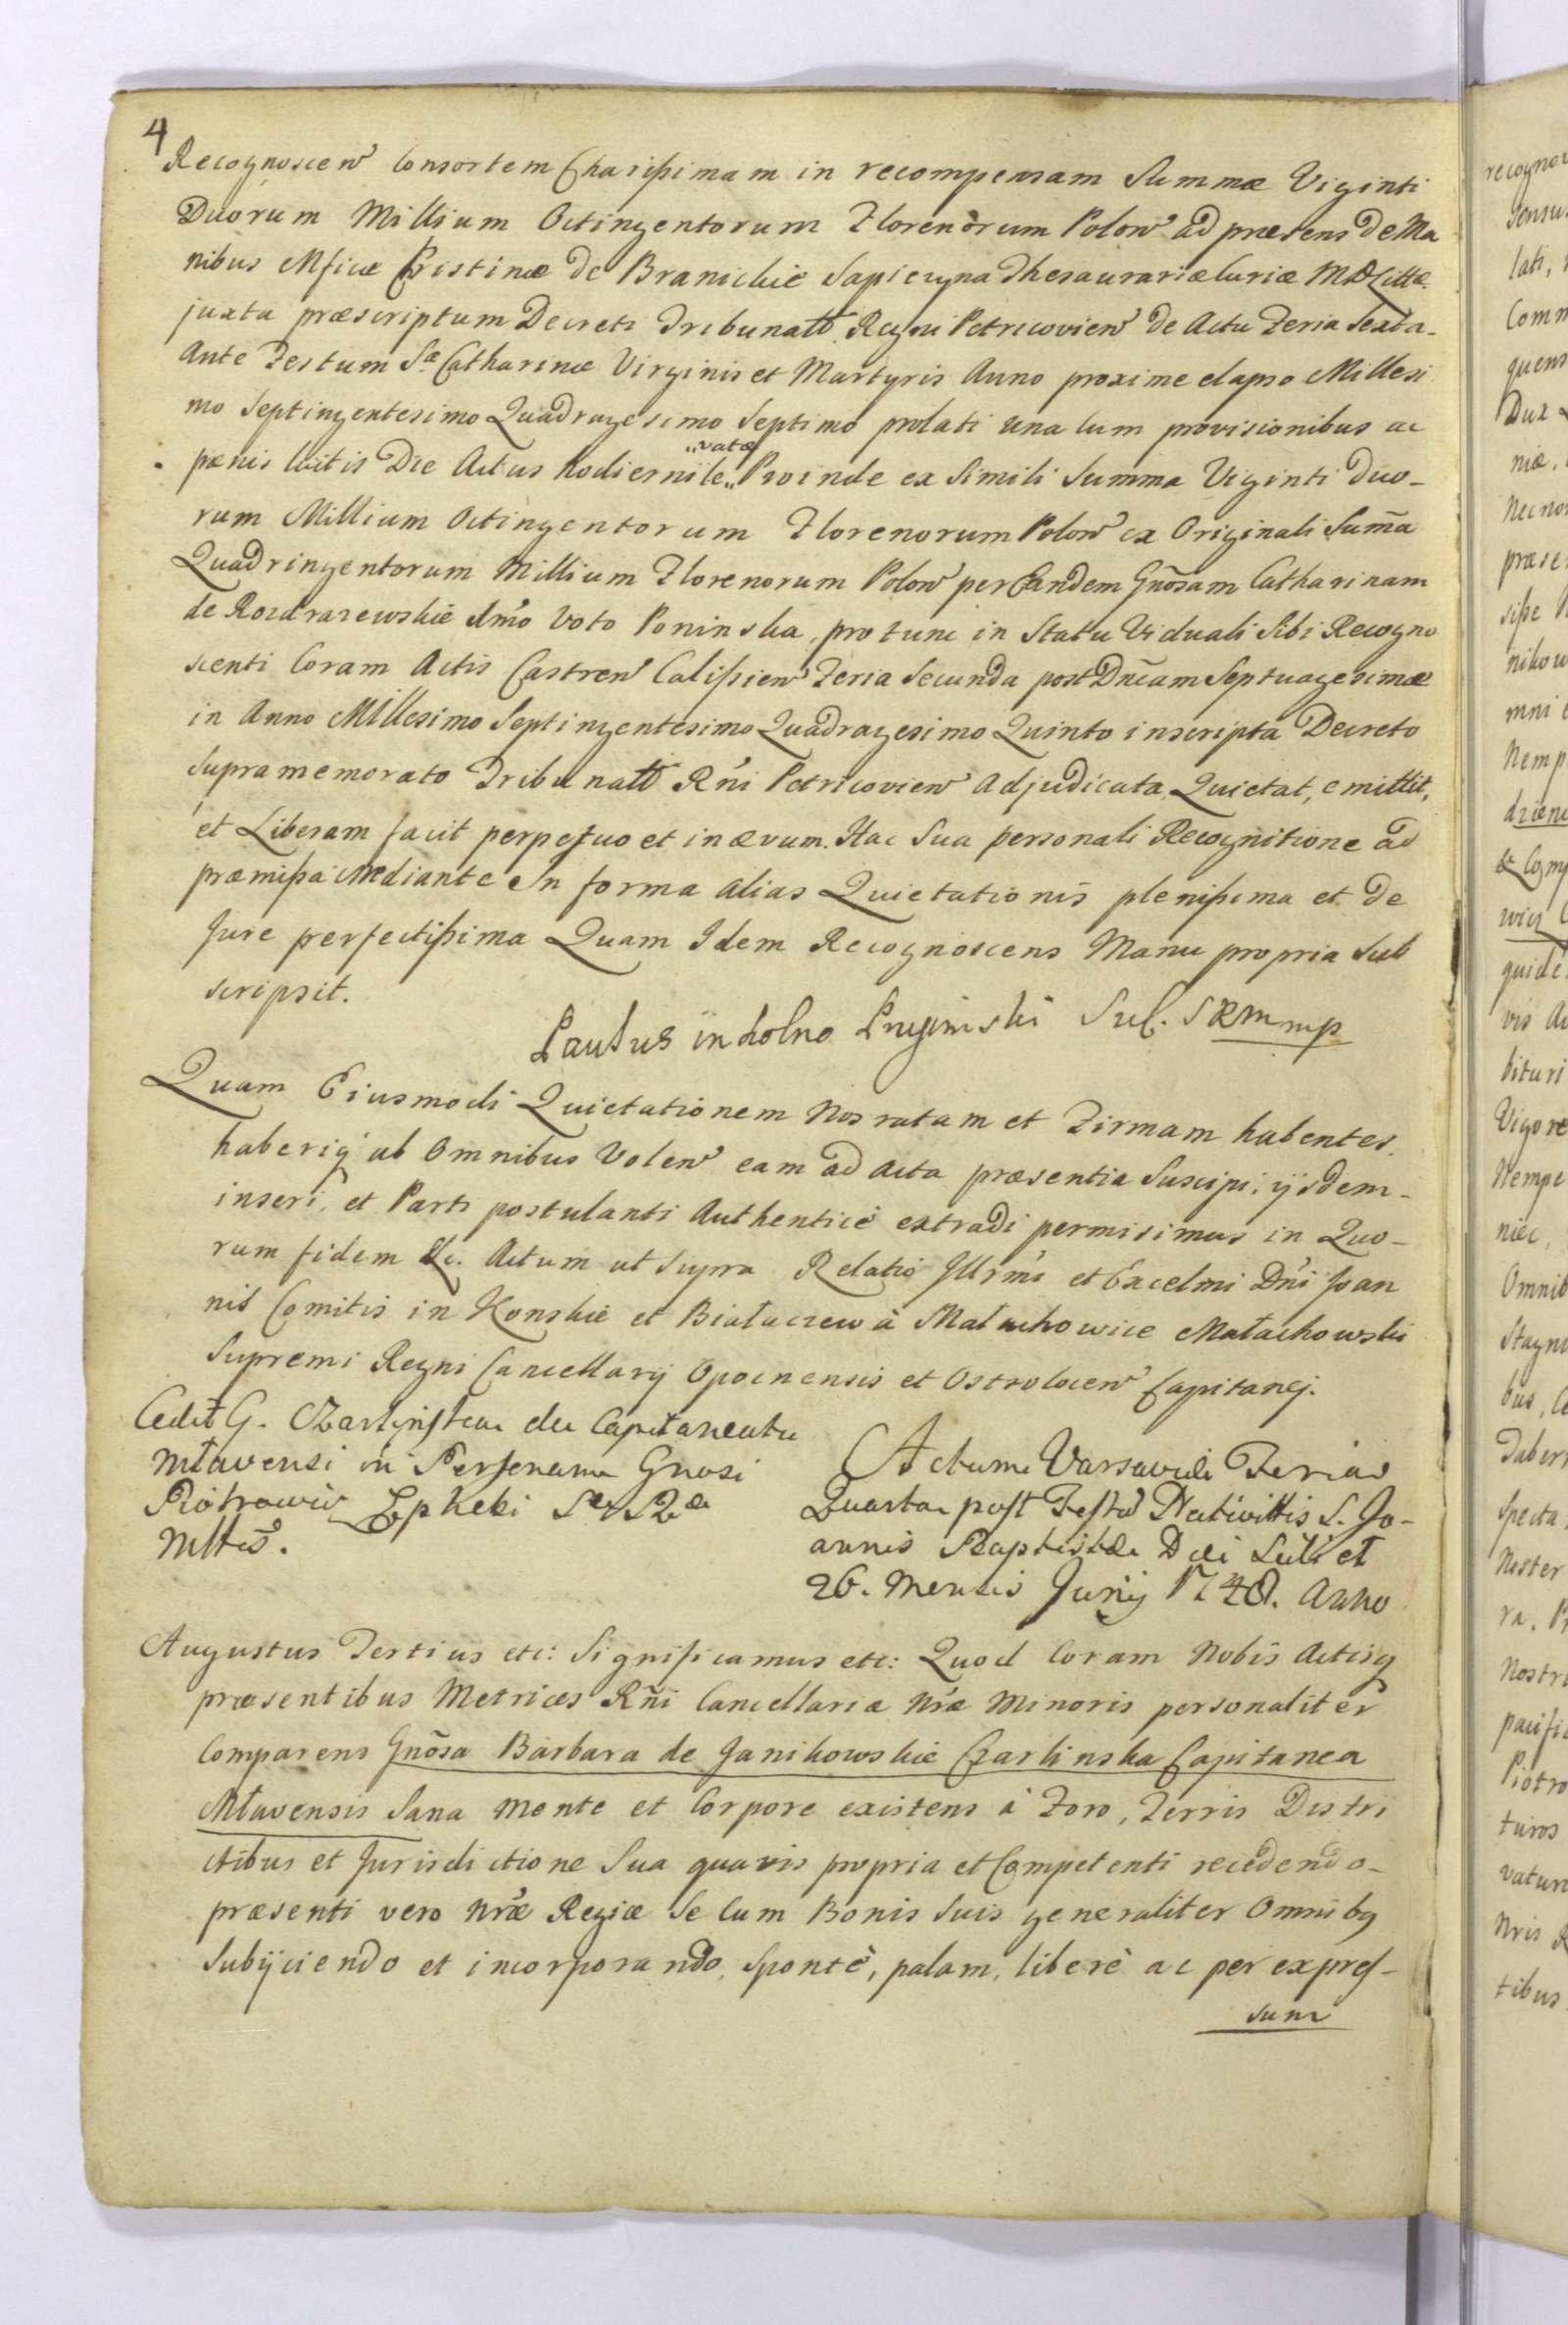 4
Recognoscen̄ Consortem Charißimam in recompensam Summæ Viginti
Duorum Millium Octingentorum Florenorum Polon̄ ad præsens de Ma
nibus Mficæ Christinæ de Branickie Sapieżyna Thesaurariæ Curiæ MDLittæ.
juxta præscriptum Decreti Tribunatt. Regni Petricovien̄ de Actu Feria Sexta-
Ante Festum Sæ Catharinæ Virginis et Martyris Anno proxime elapso Millesi
mo Septingentesimo Quadragesimo Septimo prolati una Cum provisionibus ac
pænis luitis Die Actus hodierni le„ „vatæ Proinde ex Simili Summa Viginti Duo-
rum Millium Octingentorum Florenorum Polon̄ ex Originali Sum̄a
Quadringentorum Millium Florenorum Polon̄ per Eandem Gnōsam Catharinam
de Rozdrazewskie Imo Voto Poninska, pro tunc in Statu Viduali Sibi Recogno
scenti Coram Actis Castren̄ Calißien̄ Feria Secunda post Dnc̄am Septuagesimæ
in Anno Millesimo Septingentesimo Quadragesimo Quinto inscripta Decreto
Supramemorato Tribunatt Rn̄i Petricovien̄ Adjudicata, Quietat, emittit,
et Liberam facit perpetuo et in ævum. Hac Sua personali Recognitione ad
præmißa Mediante In forma alias Quietationis plenißima et de
Jure perfectißima Quam Idem Recognoscens Manu propria Sub
scripsit.
Paulus in
Quam Eiusmodi Quietationem Nos ratam et Firmam habentes,
haberiq̃ ab Omnibus Volen̄ eam ad Acta præsentia Suscipi, ijsdem-
inseri, et Parti postulanti Authenticè extradi permisimus in Quo-
rum fidem &c. Actum ut Supra Relatio Illrm̄i et Excelmi Dn̄i Joan
nis Comitis in Konskie et Białaczew à Małachowice Małachowski
Supremi Regni Cancellarij Opocnensis et Ostrolecen̄ Capitanej.
Cedit G. Czarlińska de Capitaneatu
Mlavensi in Personam Gnosi
Piotrowin
Mltis.
Actum Varsaviæ Feria
Quarta post Festu Nativittis S. Jo-
annis Baptistæ Die Scilt et
26. Mensis Junij 1748. Anno
Augustus Tertius etc: Significamus etc: Quod Coram Nobis Actisq̃
præsentibus Metrices Rn̄i Cancellariæ Nr̄æ Minoris personaliter
Comparens Gnōsa Barbara de Janikowskie Czarlinska Capitanea
Mławensis Sana Mente et Corpore existens à Foro, Terris Distri
ctibus et Jurisdictione Sua quavis propria et Competenti recedendo-
præsenti vero Nr̄æ Regiæ Se Cum Bonis Suis generaliter Omnibq
Subijciendo et incorporando, Spontè, palam, liberè ac per expres-
sum